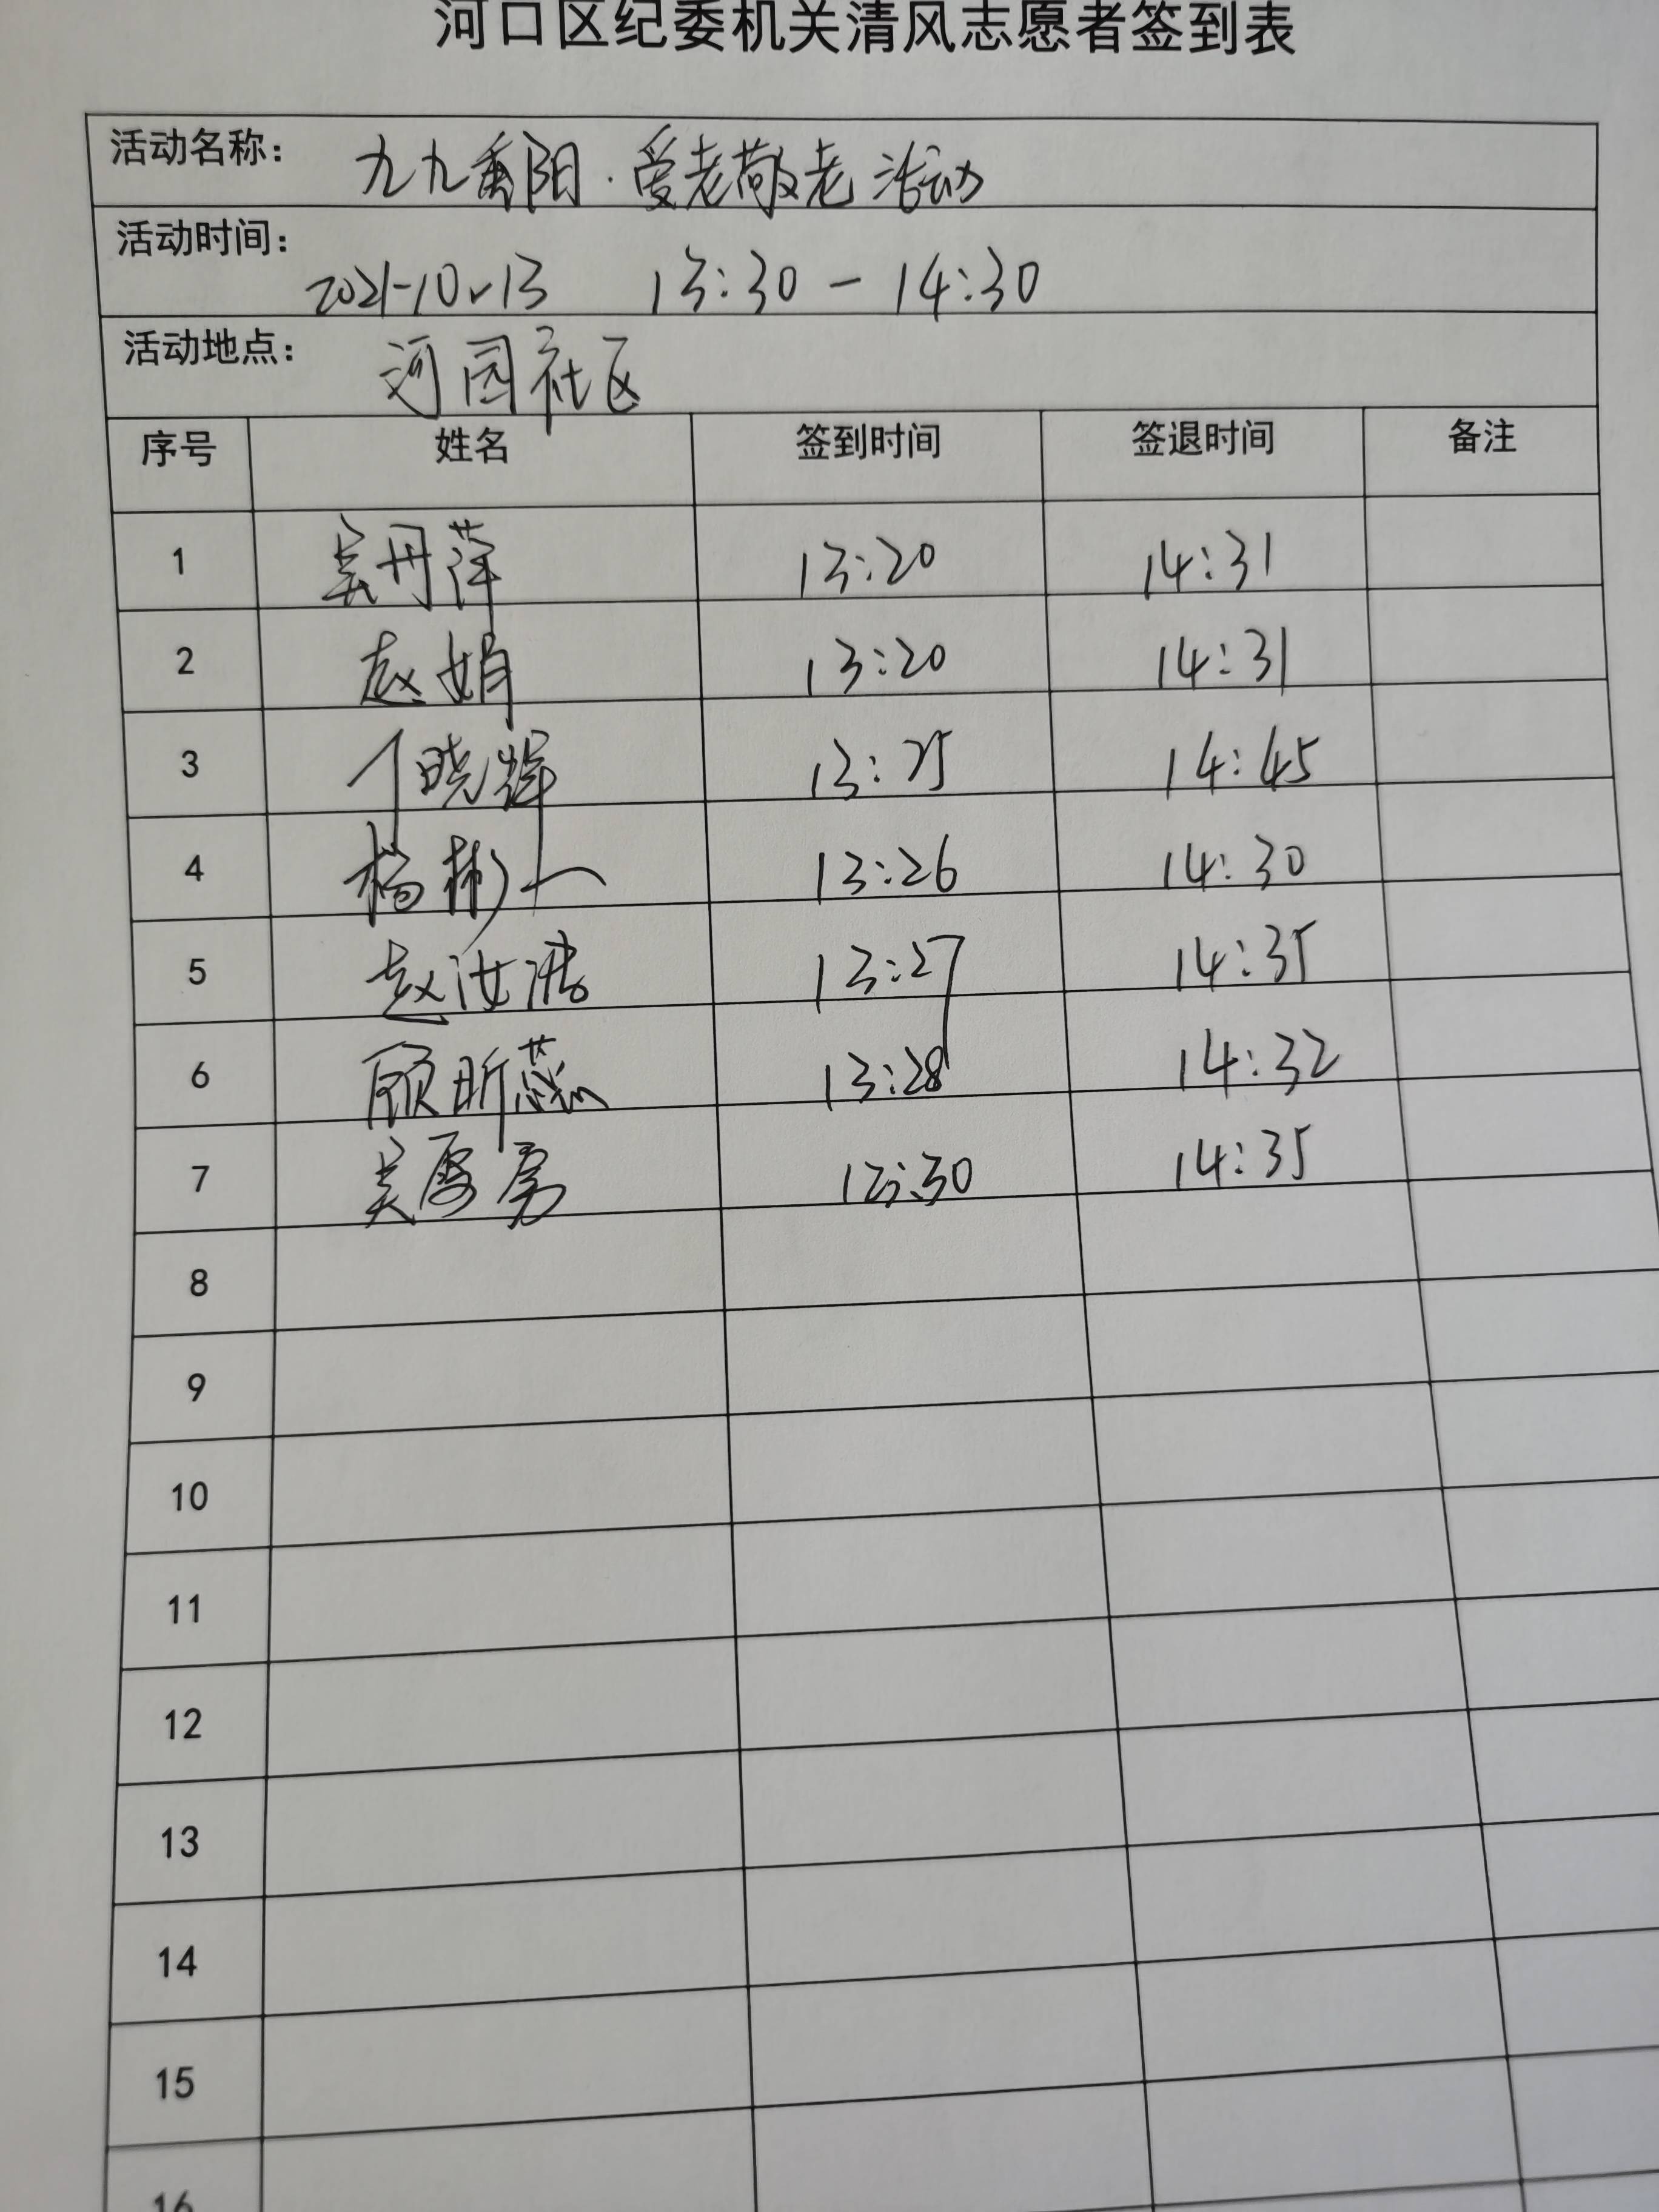 河口区纪委机关清风志愿者签到表
活动名称: 九九重阳·爱老敬老活动
活动时间: 2021-10-13 13:30-14:30
活动地点: 河园社区
序号 姓名 签到时间 签退时间 备注
1 吴丹萍 13:20 14:31
2 赵娟 13:20 14:31
3 晓辉 13:25 14:45
4 杨彬 13:26 14:30
5 赵汝 13:27 14:35
6 顾昕蕊 13:28 14:32
7 吴 13:30 14:35
8
9
10
11
12
13
14
15
16